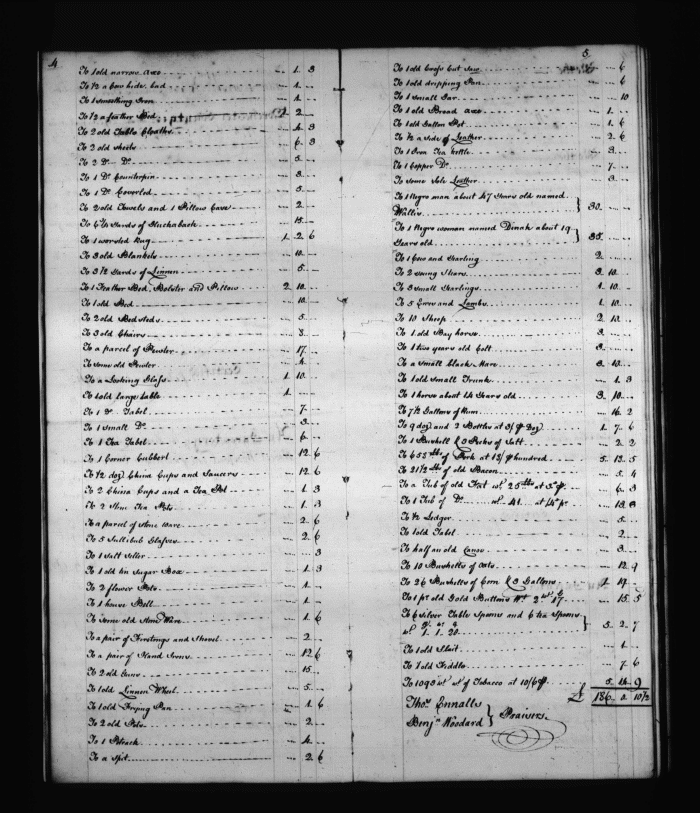 4
To 1 old narrow axe 1 3
To ½ a Cow hide. bad 1
To 1 smoothing Iron 1
To ½ a feather Bed 1 2
To 2 old Table Cloaths 4 3
To 2 old sheets 6 3
To 2 Do. Do. 5
To 1 Do. Counterpin 3
To 1 Do. Coverled 5
To 2 old Towels and 1 Pillow Case 2
To 6¼ Yards of Huckaback 15
To 1 worsted Rug 1 2 6
To 3 old Blankets 10
To 3½ Yards of Linnen 5
To 1 Feather Bed, Bolster and Pillow 2 10
To 1 old Bed 10
To 2 old Bedsteds 5
To 3 old Chairs 3
To a parcel of Pewter 17
To some old Pewter 4
To a Looking Glass 1 10
To 1 old large table 1
To 1 Do. Tabel 7
To 1 small Do. 3
To 1 Tea Tabel 6
To 1 Corner Cubbert 12 6
To ½ doz. China Cups and Saucers 12 6
To 2 China Cups and a Tea Pot 1 3
To 2 Stone Tea Pots 1 3
To a parcel of Stone ware 2 6
To 5 Sullibub Glasses 2 6
To 1 Salt Seller 3
To 1 old tin Sugar Box 1 3
To 2 flower Pots 1
To 1 house Bell 1
To some old Stone Ware 1 6
To a pair of Firetongs and Shovel 2
To a pair of Hand Irons 12 6
To 2 old Guns 15
To 1 old Linnen Wheel 5
To 1 old Frying Pan 1 6
To 2 old Pots 2
To 1 4
To a Spit 2 6
5
To 1 old Cross Cut Saw 6
To 1 old dripping Pan 6
To 1 small Jar 10
To 1 old Broad axe 1
To 1 old Gallon Pot 1 6
To ½ a side of Leather 2 6
To 1 Iron Tea kettle 3
To 1 Copper Do. 7
To some Sole Leather 3
To 1 Negro man about 47 Years old named
Wallis 30
To 1 Negro woman named Dinah about 19
Years old 35
To 1 Cow and Yearling 2
To 2 young Steers 3 10
To 3 small Yearlings 1 10
To 5 Ewes and Lambs 1 10
To 10 Sheep 2 10
To 1 old Bay horse 3
To 1 two years old Colt 3
To a small black Mare 3 10
To 1 old small Trunk 1 3
To 1 horse about 14 Years old 3 10
To 7½ Gallons of Rum 16 2
To 9 doz and 2 Bottles at 3/ Doz 1 7 6
To 1 Bushell & 3 Pecks of Salt 2 2
To 655 lb of Pork at 13/ hundred 5 13 5
To 21½ lb of old Bacon 5 4
To a Tub of old Fat wt. 25 lb at 3d p. 6 3
To 1 Tub of Do. wt. 41 at 4d p. 13 8
To ½ Ledger 5
To 1 old Tabel 2
To half an old Canoe 3
To 10 Bushells of oats 12 9
To 26 Bushells of Corn & 3 Gallons 1 19
To 1 pr. old Gold Buttons 15 5
To 6 silver Table Spoons and 6 tea Spoons
wt. 1. 1. 20 5 2 7
To 1 old 1
To 1 old Fiddle 7 6
To 1093 wt. of Tobacco at 10/6 5 14 9
£ 186 2 10½
Thos. Ennalls
Benjn. Woodard } Praisers